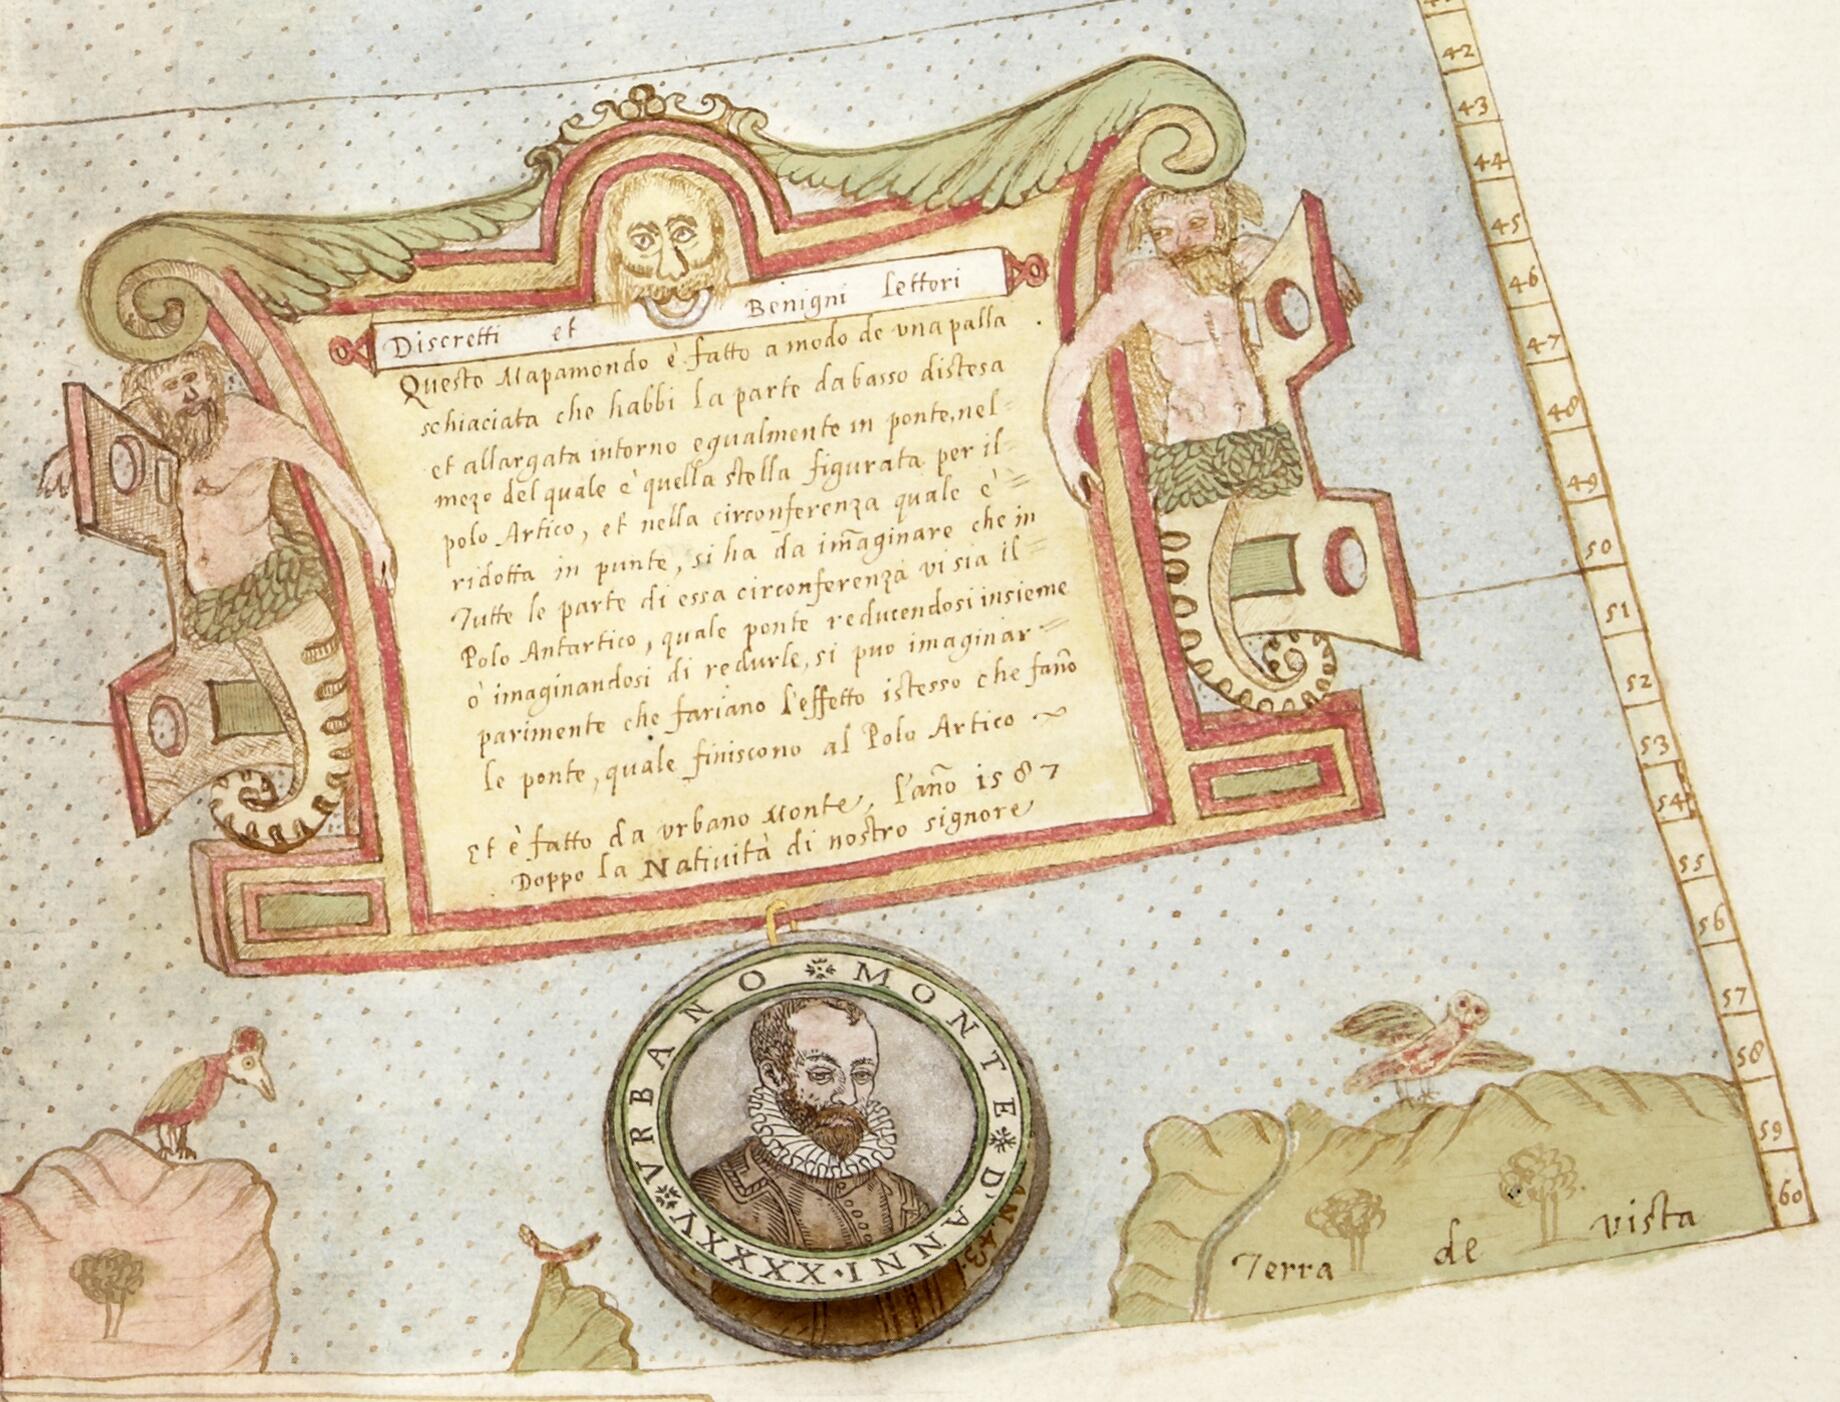 42
43
44
45
46
47
48
49
50
51
52
53
54
55
56
57
58
59
60
Discretti et Benigni lettori
Questo Mapamondo è fatto a modo de una palla
schiaciata che habbi la parte dabasso distesa
et allargata intorno egualmente in ponte, nel=
mezo del quale è quella stella figurata per il=
polo Artico, et nella circonferenza quale è=
ridotta in punte, si ha da im̄aginare che in
Tutte le parte di essa circonferenza vi sia il=
Polo Antartico, quale ponte reducendosi insieme
ò imaginandosi di redurle, si puo imaginar=
parimente che fariano l'effetto istesso che fan̄o
le ponte, quale finiscono al Polo Artico
Et è fatto da vrbano Monte, l'an̄o 1587
Doppo la Natività di nostro signore
VRBANO MONTE D'ANNI·XXXXV
Terra de vista